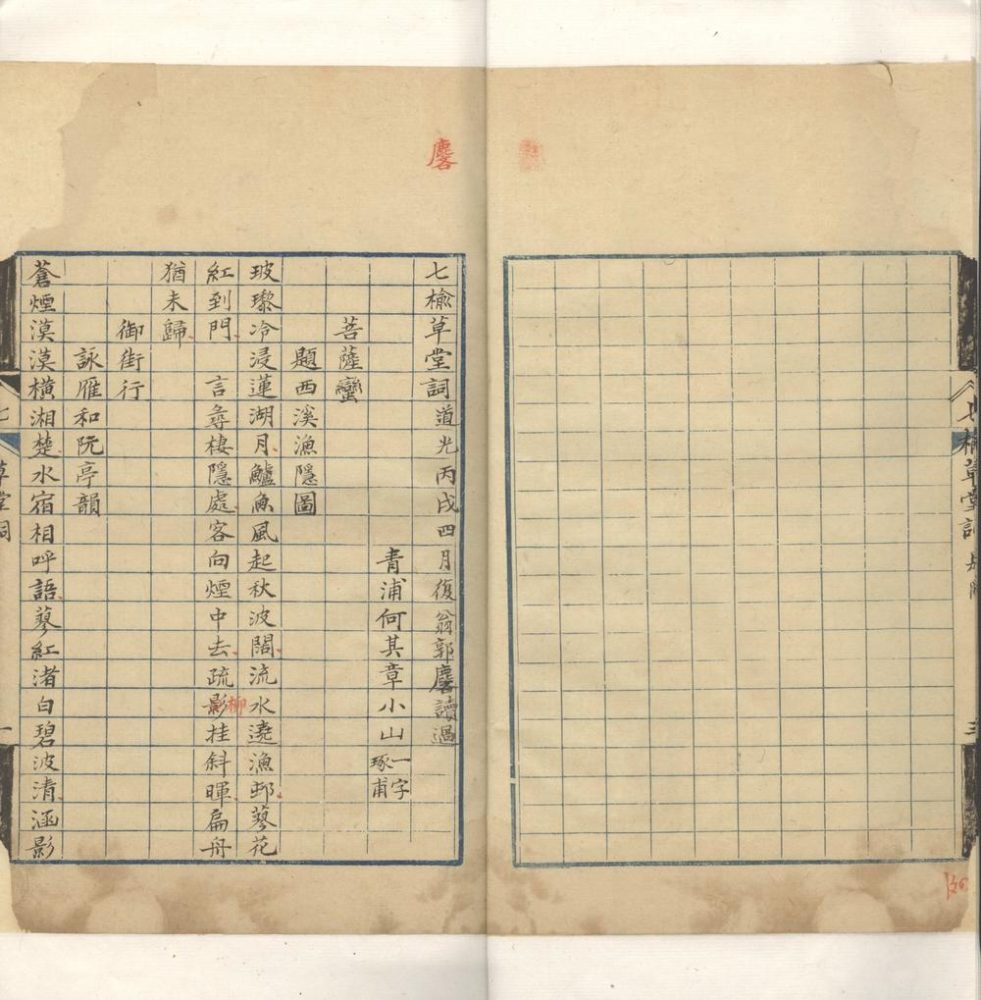 七榆草堂詞
三
麐
七榆草堂詞道光丙戌四月復翁郭麐讀過
青浦何其章小山一字琢甫
菩薩蠻
題西溪漁隱圖
玻瓈冷浸蓮湖月鱸魚風起秋波闊流水遶漁邨蓼花
紅到門　言尋棲隱處客向煙中去疏影挂斜暉扁舟
柳
猶未歸
御街行
詠雁和阮亭韻
蒼煙漠漠橫湘楚水宿相呼語蓼紅渚白碧波清涵影
七
草堂詞
一